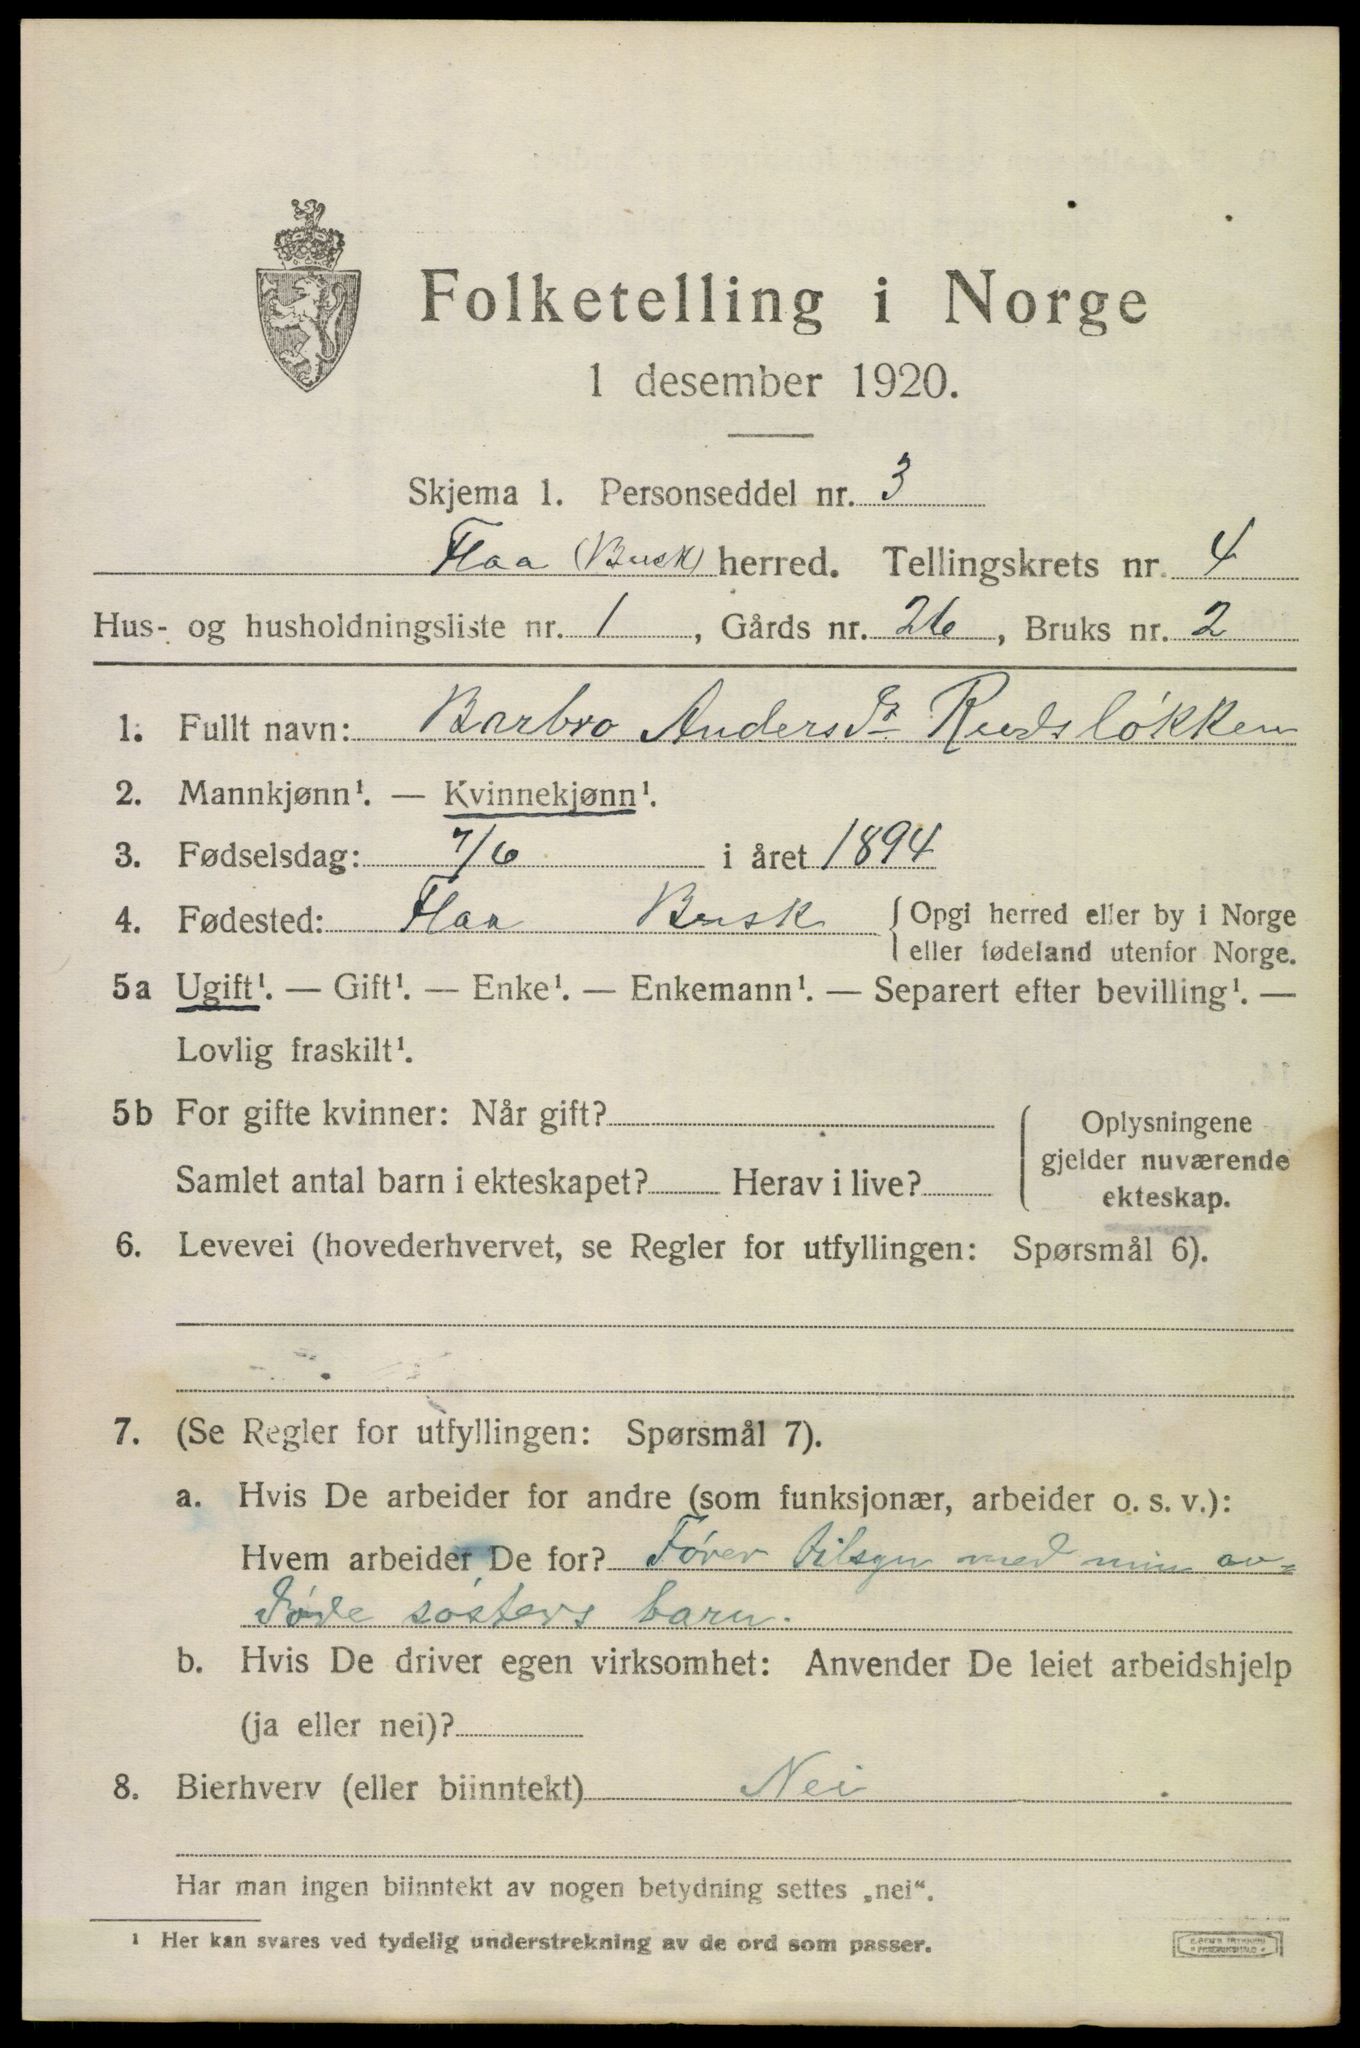 Folketelling i Norge
1 desember 1920.
Skjema 1. Personseddel nr. 3
Flaa (Busk) herred. Tellingskrets nr. 4
Hus- og husholdningsliste nr. 1, Gårds nr. 26, Bruks nr. 2
1. Fullt navn: Barbro Andersdt Rudsløkken
2. Mannkjønn¹. — Kvinnekjønn¹.
3. Fødselsdag: 7/6 i året 1894
4. Fødested: Flaa Busk {Opgi herred eller by i Norge
eller fødeland utenfor Norge.
5a Ugift¹. — Gift¹. — Enke¹. — Enkemann¹. — Separert efter bevilling¹. —
Lovlig fraskilt¹.
5b For gifte kvinner: Når gift?
Samlet antal barn i ekteskapet? Herav i live?
{Oplysningene
gjelder nuværende
ekteskap.
6. Levevei (hovederhvervet, se Regler for utfyllingen: Spørsmål 6).
7. (Se Regler for utfyllingen: Spørsmål 7).
a. Hvis De arbeider for andre (som funksjonær, arbeider o. s. v.):
Hvem arbeider De for? Fører tilsyn med min av-
døde søsters barn.
b. Hvis De driver egen virksomhet: Anvender De leiet arbeidshjelp
(ja eller nei)?
8. Bierhverv (eller biinntekt) Nei
Har man ingen biinntekt av nogen betydning settes „nei“.
¹ Her kan svares ved tydelig understrekning av de ord som passer.